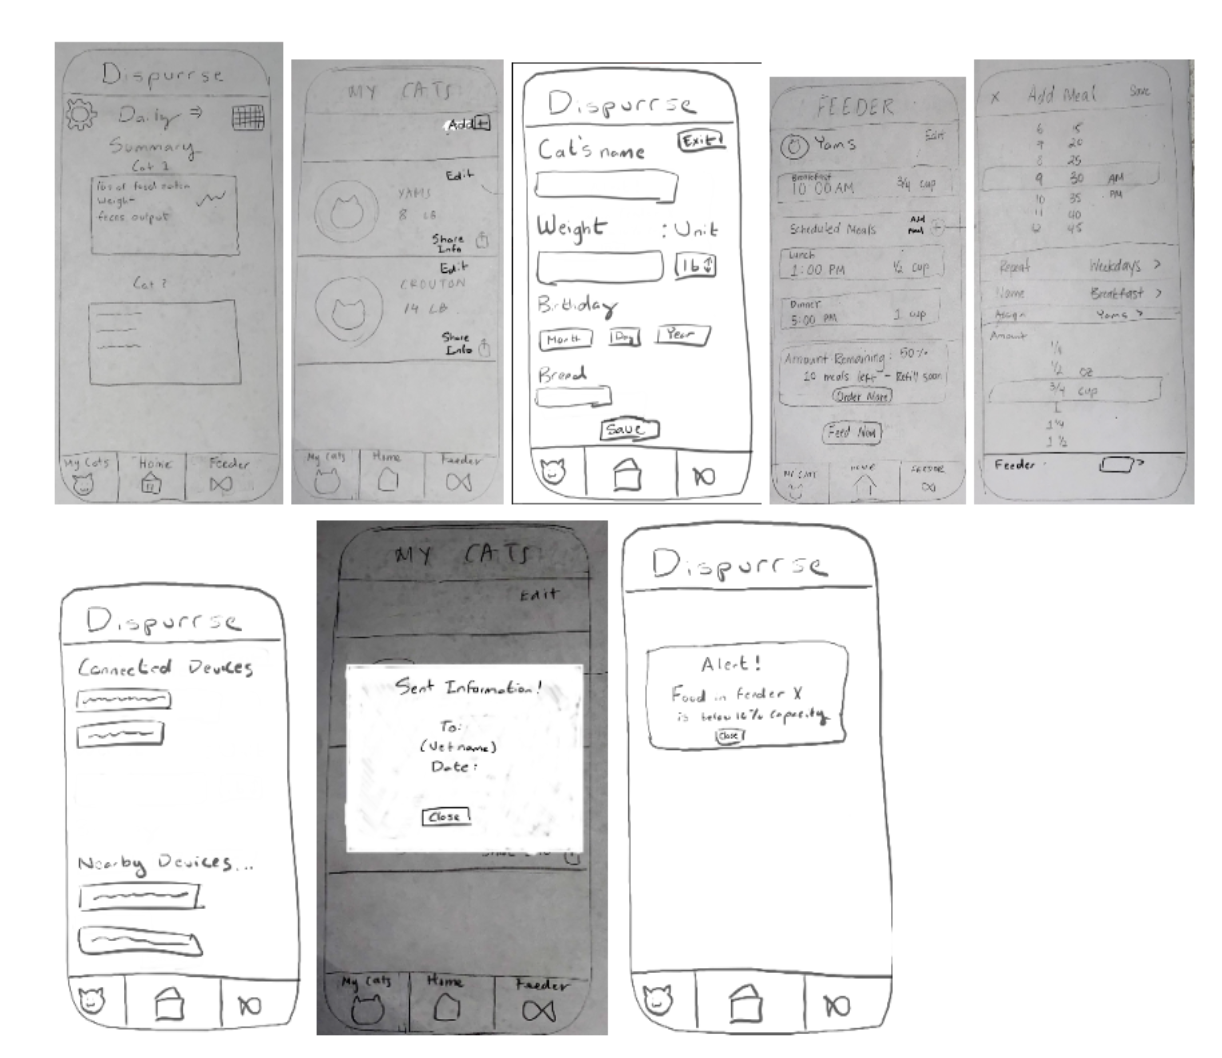 Dispurrse
Daily ⇒
Summary
Cat 1
weight
feces output
Cat 2
My Cats Home Feeder
MY CATS
Add +
Edit
YAMS
8 LB
Share
Info
Edit
CROUTON
14 LB
Share
Info
My Cats Home Feeder
Dispurrse
Exit
Cat's name
Weight : Unit
lb
Birthday
Month Day Year
Breed
Save
FEEDER
Yams Edit
Breakfast
10:00 AM 3/4 cup
Scheduled Meals Add
Meal +
Lunch
1:00 PM 1/2 cup
Dinner
5:00 PM 1 cup
Amount Remaining: 50%
20 meals left - Refill soon
Order More
Feed Now
MY CATS HOME FEEDER
X Add Meal Save
6 15
7 20
8 25
9 30 AM
10 35 PM
11 40
12 45
Repeat Weekdays >
Name Breakfast >
Assign Yams >
Amount
1/2 oz
3/4 cup
1
1 1/4
1 1/2
Feeder >
Dispurrse
Connected Devices
Nearby Devices...
MY CATS
Edit
Sent Information!
To:
(Vet name)
Date:
Close
My Cats Home Feeder
Dispurrse
Alert!
Food in feeder X
is below 10% capacity
Close